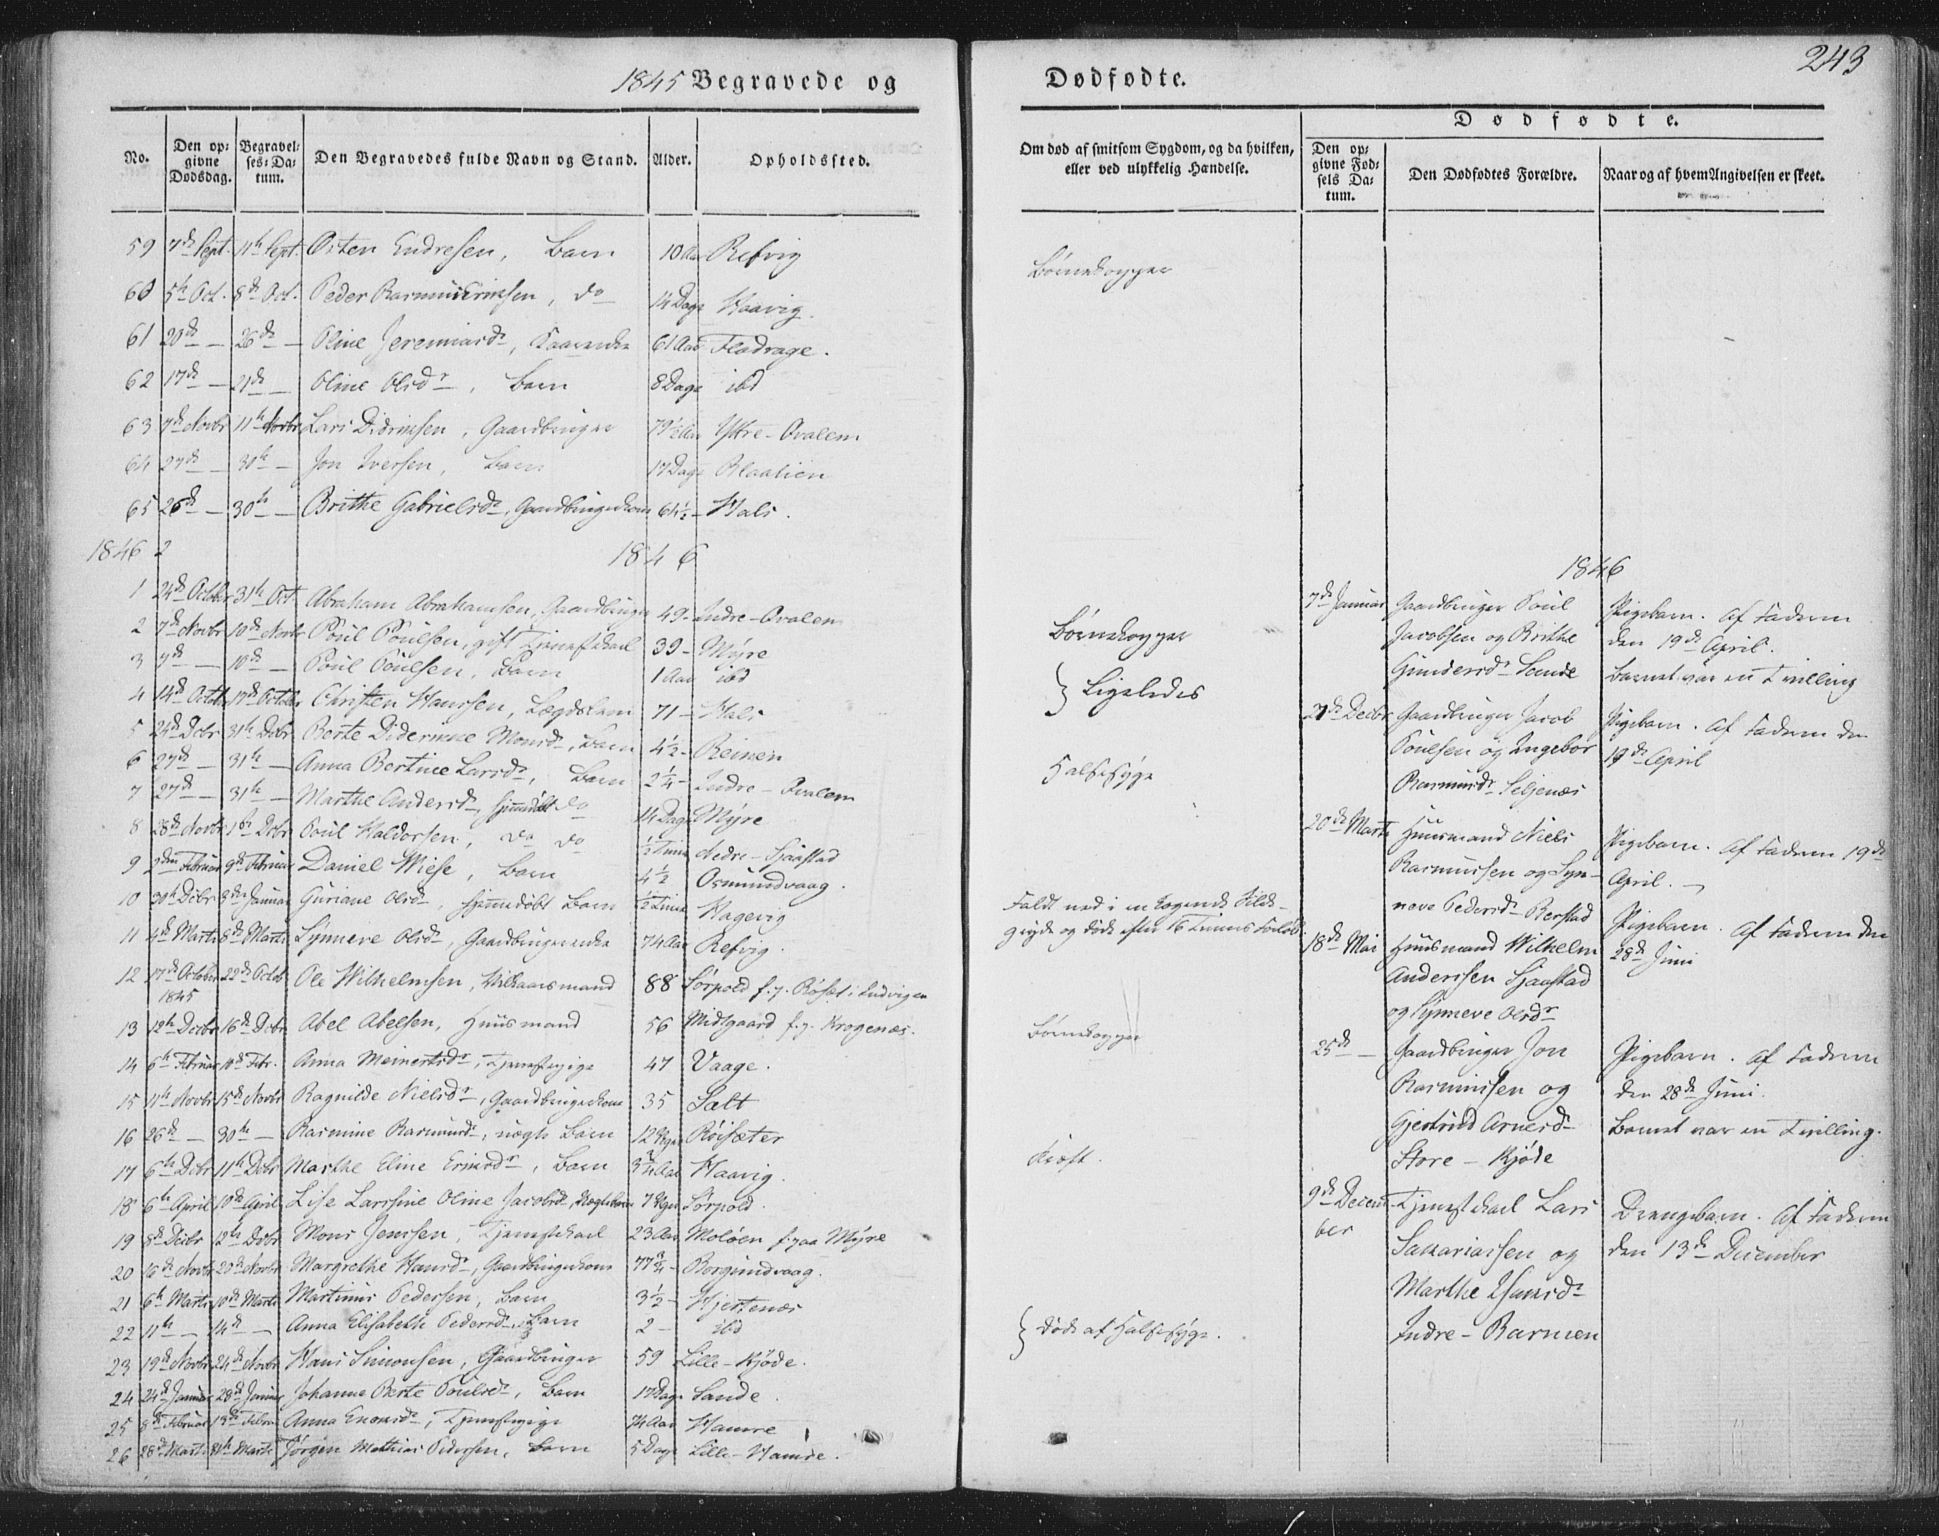 1845 Begravede og
No.
Den opgivne Dødsdag.
Begravelses-Datum.
Den Begravedes fulde Navn og Stand.
Alder.
Opholdssted.
59 7de Sept. 11te Sept. Østen Endresen, Barn 10 Aar Refvig
60 5te Oct. 8de Oct. Peder Rasmus Ericksen, do 14 Dage Haavig.
61 20de — 26de — Oline Jeremiasdr, 61 Aar Flodrage.
62 17de — 21de — Oline Olsdr, Barn 8 Dage ibd
63 7de Novbr 11te Novbr Lars Didriksen, Gaardbruger 79½ Aar Yttre-Qvalem
64 27de — 30te — Jon Iversen, Barn 17 Dage Blaalien
65 26de — 30te — Brithe Gabrielsdr, Gaardbrugerkone 64½ — Hals.
1846 1846
1 24de October 31te Oct. Abraham Abrahamsen, Gaardbruger 49 - Indre-Qvalem
2 7de Novbr 10de Novbr Poul Poulsen, gift Tjenestekarl 39 - Myre
3 7de — 10de — Poul Poulsen, Barn 1 Aar ibd
4 14de Octbr 17de Octobr Christen Hanssen, Lægdslem 71 — Hals
5 24de Decbr 31te Decbr Berte Didericke Monsdr, Barn 4½ - Reinen
6 27de — 31te — Anna Bertine Larsdr, Barn 2¼ - Indre-Qvalem
7 27de — 31te — Marthe Andersdr, hjemdøbt do 14 Dage Myre
8 28de Novbr 1ste Decbr Poul Haldorsen, do do ½ Time Nedre-Sjaastad
9 2den Februar 9de Februar Daniel Wiese, Barn 4½ Osmundvaag.
10 30te Decbr 8de Januar Guriane Olsdr, hjemmedøbt Barn ½ Time Hagevig
11 4de Marts 8de Marts Synneve Olsdr, Gaardbrugerenke 74 Aar Refvig.
12 17de October 1845 22de Octobr Ole Wilhelmsen, Vilkaarsmand 88 Sørpold f.g. Røset i Indvigen
13 12te Decbr 16de Decbr Abel Abelsen, Huusmand 56 Midtgaard f.g. Krogenæs.
14 6te Februar 10de Febr. Anna Meinertsdr, Tjenestepige 47 Vaage.
15 11te Novbr 15de Novbr Ragnilde Nielsdr, Gaardbrugerkone 35 Salt
16 26de — 30te — Rasmine Rasmusdr, uægte Barn 12 Uger Røisæter
17 6te Decbr 11te Decbr Marthe Eline Ericsdr, Barn 3¾ Aar Haavig.
18 6te April 10de April Lise Larssine Oline Jacobsdr, uægte Barn 7 Uger Sørpold.
19 8de Decbr 12te Decbr Mons Jenssen, Tjenestekarl 23 Aar Moløen f. paa Myre
20 16de Novbr 20de Novbr Margrethe Hansdr, Gaardbrugerkone 77¾ - Borgundvaag.
21 6te Marts 10de Marts Martinus Pedersen, Barn 3½ - Hjertenæs
22 11te — 14de — Anna Elisabeth Pedersdr, Barn 2 - ibd
23 19de Novbr 24de Novbr Hans Simonsen, Gaardbruger 59 Lille-Kjøde.
24 24de Januar 28de Januar Johanna Berte Poulsdr, Barn 17 Dage Sande.
25 8de Februar 13de Febru Anna Enoksdr, Tjenestepige 74 Aar Hamre
26 28de Marts 31te Marts Jørgen Mathias Pedersen, Barn 5 Dage Lille-Hamre.
243
Dødfødte.
Om død af smitsom Sygdom, og da hvilken, eller ved ulykkelig Hændelse.
Dødfødte.
Den opgivne Fødsels Datum.
Den Dødfødtes Forældre.
Naar og af hvem Angivelsen er skeet.
Børnekopper
Børnekopper
} Ligeledes
Halssyge
Faldt ned i en kogende Silde-
gryde og døde efter 16 Timers Forløb.
Børnekopper
Kræft.
} døde af Halssyge.
1846
7de Januar Gaardbruger Poul Pigebarn. Af Faderen
Jacobsen og Brithe den 19de April.
Gundersdr Sande Barnet var en Tvilling
27de Decbr Gaardbruger Jacob Pigebarn. Af Faderen den
Poulsen og Ingebor 19de April
Rasmusdr Seljenæs
20de Marts Huusmand Niels Pigebarn. Af Faderen 19de
Rasmussen og Syn- April. —
neve Pedersdr Berstad
18de Mai Huusmand Wilhelm Pigebarn. Af Faderen den
Anderssen Sjaastad 28de Juni
og Synneve Olsdr
25de — Gaardbruger Jon Pigebarn. Af Faderen
Rasmussen og den 28de Juni.
Gjertrud Arnesdr Barnet var en Tvilling.
Store-Kjøde
9de Decem- Tjenestekarl Lars Drengebarn. Af Faderen
ber Sakariassen og den 13de December
Marthe Hansdr
Indre-Barmen